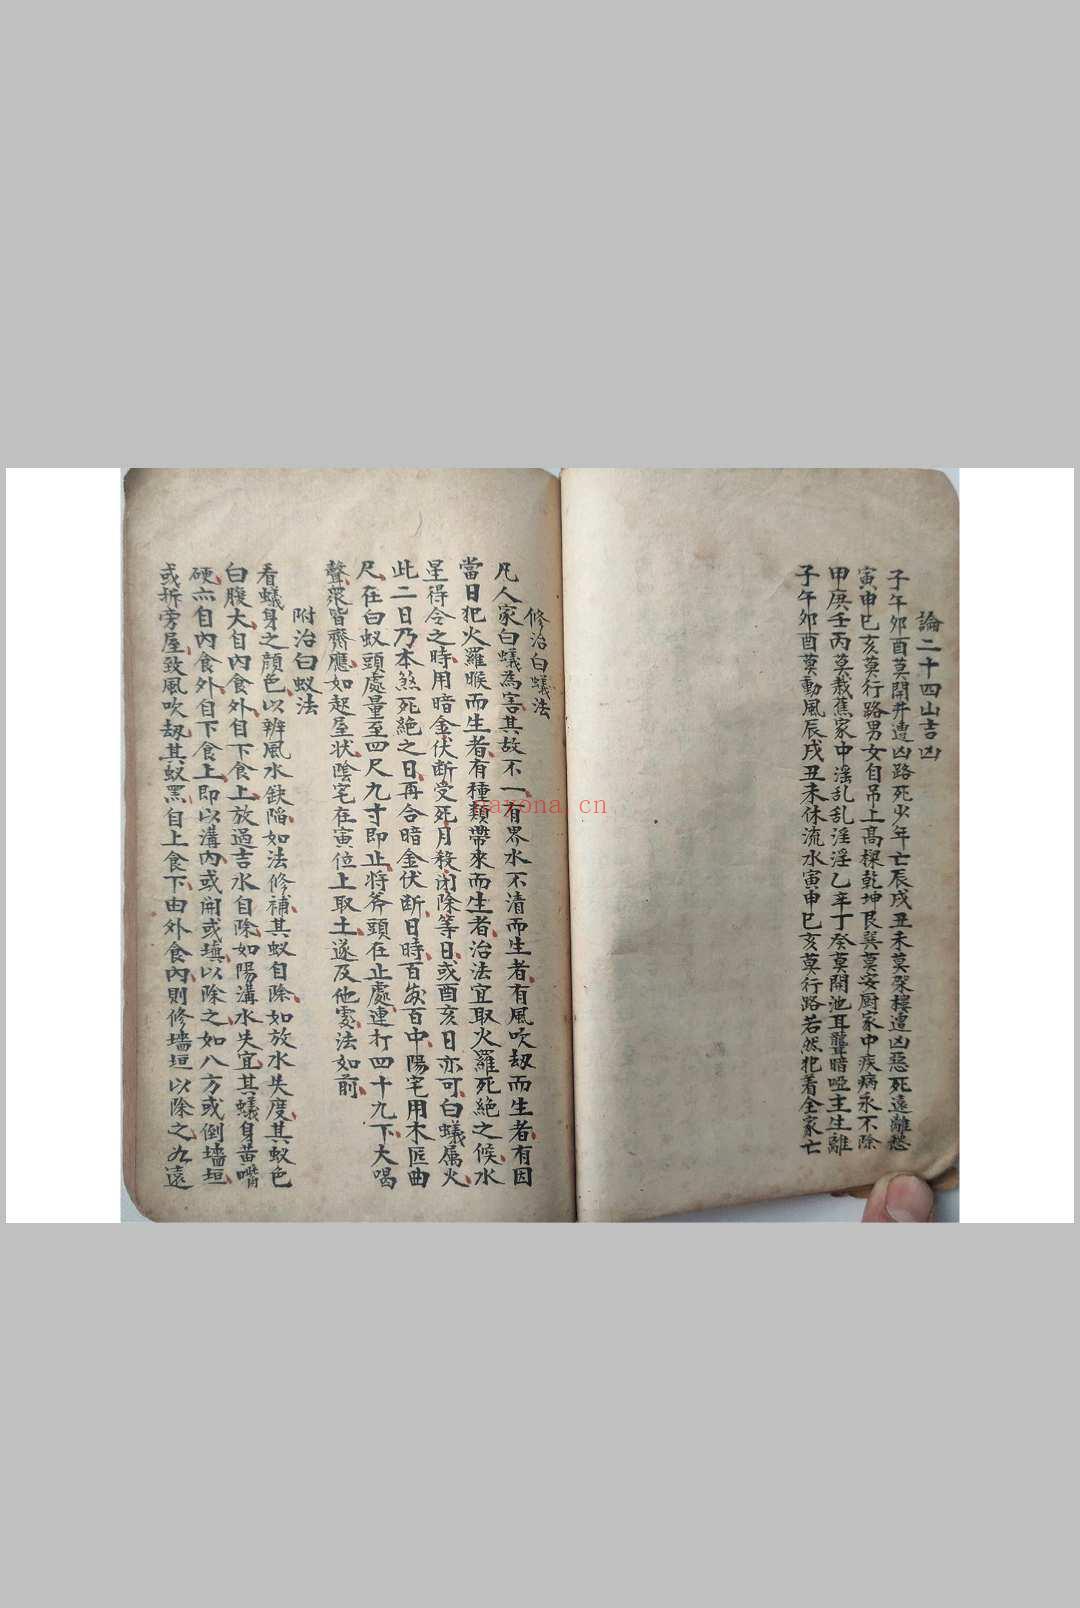 論二十四山吉凶
子午卯酉莫開井遭凶路死少年亡辰戌丑未莫架樓遭凶惡死遠離愁
寅申巳亥莫行路男女自吊上高樑乾坤艮巽莫安厨家中疾病永不除
甲庚壬丙莫栽蕉家中淫乱乱淫淫乙辛丁癸莫開池耳聾暗啞主生離
子午卯酉莫動風辰戌丑未休流水寅申巳亥莫行路若然犯着全家亡
修治白蟻法
凡人家白蟻為害其故不一有界水不清而生者有風吹刼而生者有因
當日犯火羅睺而生者有種類帶來而生者治法宜取火羅死絕之候水
星得令之時用暗金伏断受死月殺閉除等日或酉亥日亦可白蟻属火
此二日乃本煞死絕之日再合暗金伏断日時百发百中陽宅用木匠曲
尺在白蚁頭處量至四尺九寸即止将斧頭在止處連打四十九下大喝
聲衆皆齊應如起屋状陰宅在寅位上取土遂及他處法如前
附治白蚁法
看蟻身之顔色以辨風水缺陥如法修補其蚁自除如放水失度其蚁色
白腹大自内食外自下食上放過吉水自除如陽溝水失宜其蟻身黄嘴
硬亦自内食外自下食上即以溝内或開或塡以除之如八方或倒墻垣
或拆旁屋致風吹刼其蚁黑自上食下由外食内則修墻垣以除之九遠
nayona.cn